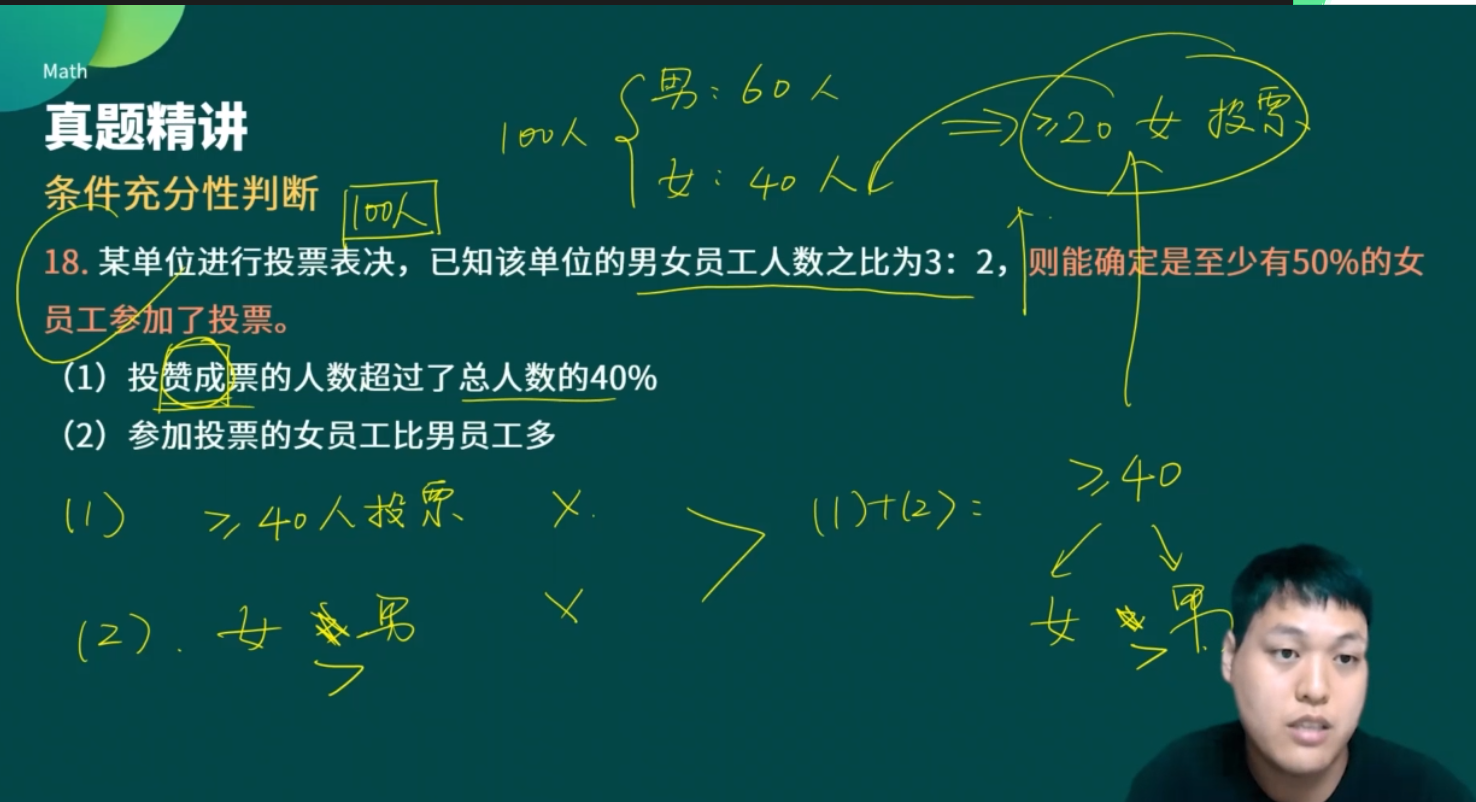 Math
真题精讲
条件充分性判断
100人
100人
男：60人
女：40人
⇒ ≥20 女 投票
18. 某单位进行投票表决，已知该单位的男女员工人数之比为3：2，则能确定是至少有50%的女
员工参加了投票。
（1）投赞成票的人数超过了总人数的40%
（2）参加投票的女员工比男员工多
(1) ≥40人投票 ×.
(2). 女 > 男 ×
(1)+(2)：
≥40
女 > 男